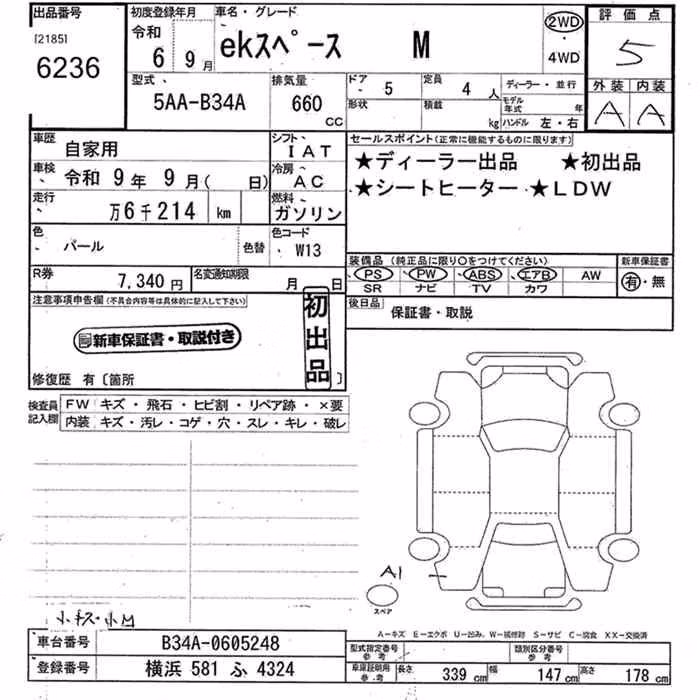 出品番号
[2185]
6236
初度登録年月
令和
6 9月
車名・グレード
ekスペース M
2WD
・
4WD
評価点
5
外装 内装
A A
型式
5AA-B34A
排気量
660
CC
ドア 5
定員 4 人
形状
積載 kg
ディーラー・並行
モデル年式 年
ハンドル 左・右
車歴
自家用
シフト
IAT
車検 令和 9年 9月( 日)
冷房 AC
走行 万6千214 km
燃料 ガソリン
色 パール
色替
色コード W13
R券 7,340 円
名変通知期限 月 日
セールスポイント(正常に機能するものに限ります)
★ディーラー出品 ★初出品
★シートヒーター ★LDW
装備品 (純正品に限り○をつけてください)
PS PW ABS エアB AW
SR ナビ TV カワ
新車保証書
有・無
後日品
保証書・取説
注意事項申告欄(不具合内容等は具体的に記入して下さい)
新車保証書・取説付き
初出品
修復歴 有〔箇所 〕
検査員記入欄
FW キズ・飛石・ヒビ割・リペア跡・×要
内装 キズ・汚レ・コゲ・穴・スレ・キレ・破レ
A1
スペア
小キズ・小M
A－キズ E－エクボ U－凹み、W－補修跡 S－サビ C－腐食 XX－交換済
車台番号 B34A-0605248
登録番号 横浜 581 ふ 4324
型式指定番号 参考
類別区分番号 参考
車庫証明用 参考
長さ 339 cm 幅 147 cm 高さ 178 cm